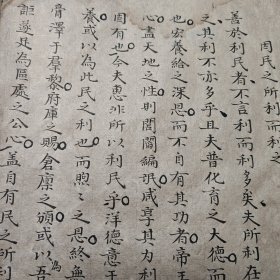 因民之所利而利之
善於利民者不言利而利多矣夫所利在
之其利不亦多乎且夫普化育之大德而
也宏養給之深恩而不自有其功者帝王
心盡天地之性則閭閻編氓咸享其为利
固有也今夫惠非所以利民乎洋德意于
養或以為此民之利也而煦之恩終無
膏澤于羣黎府庫之賜倉廩之頒或以為吾
詎遂廷為區處之公心蓋自有民之所利